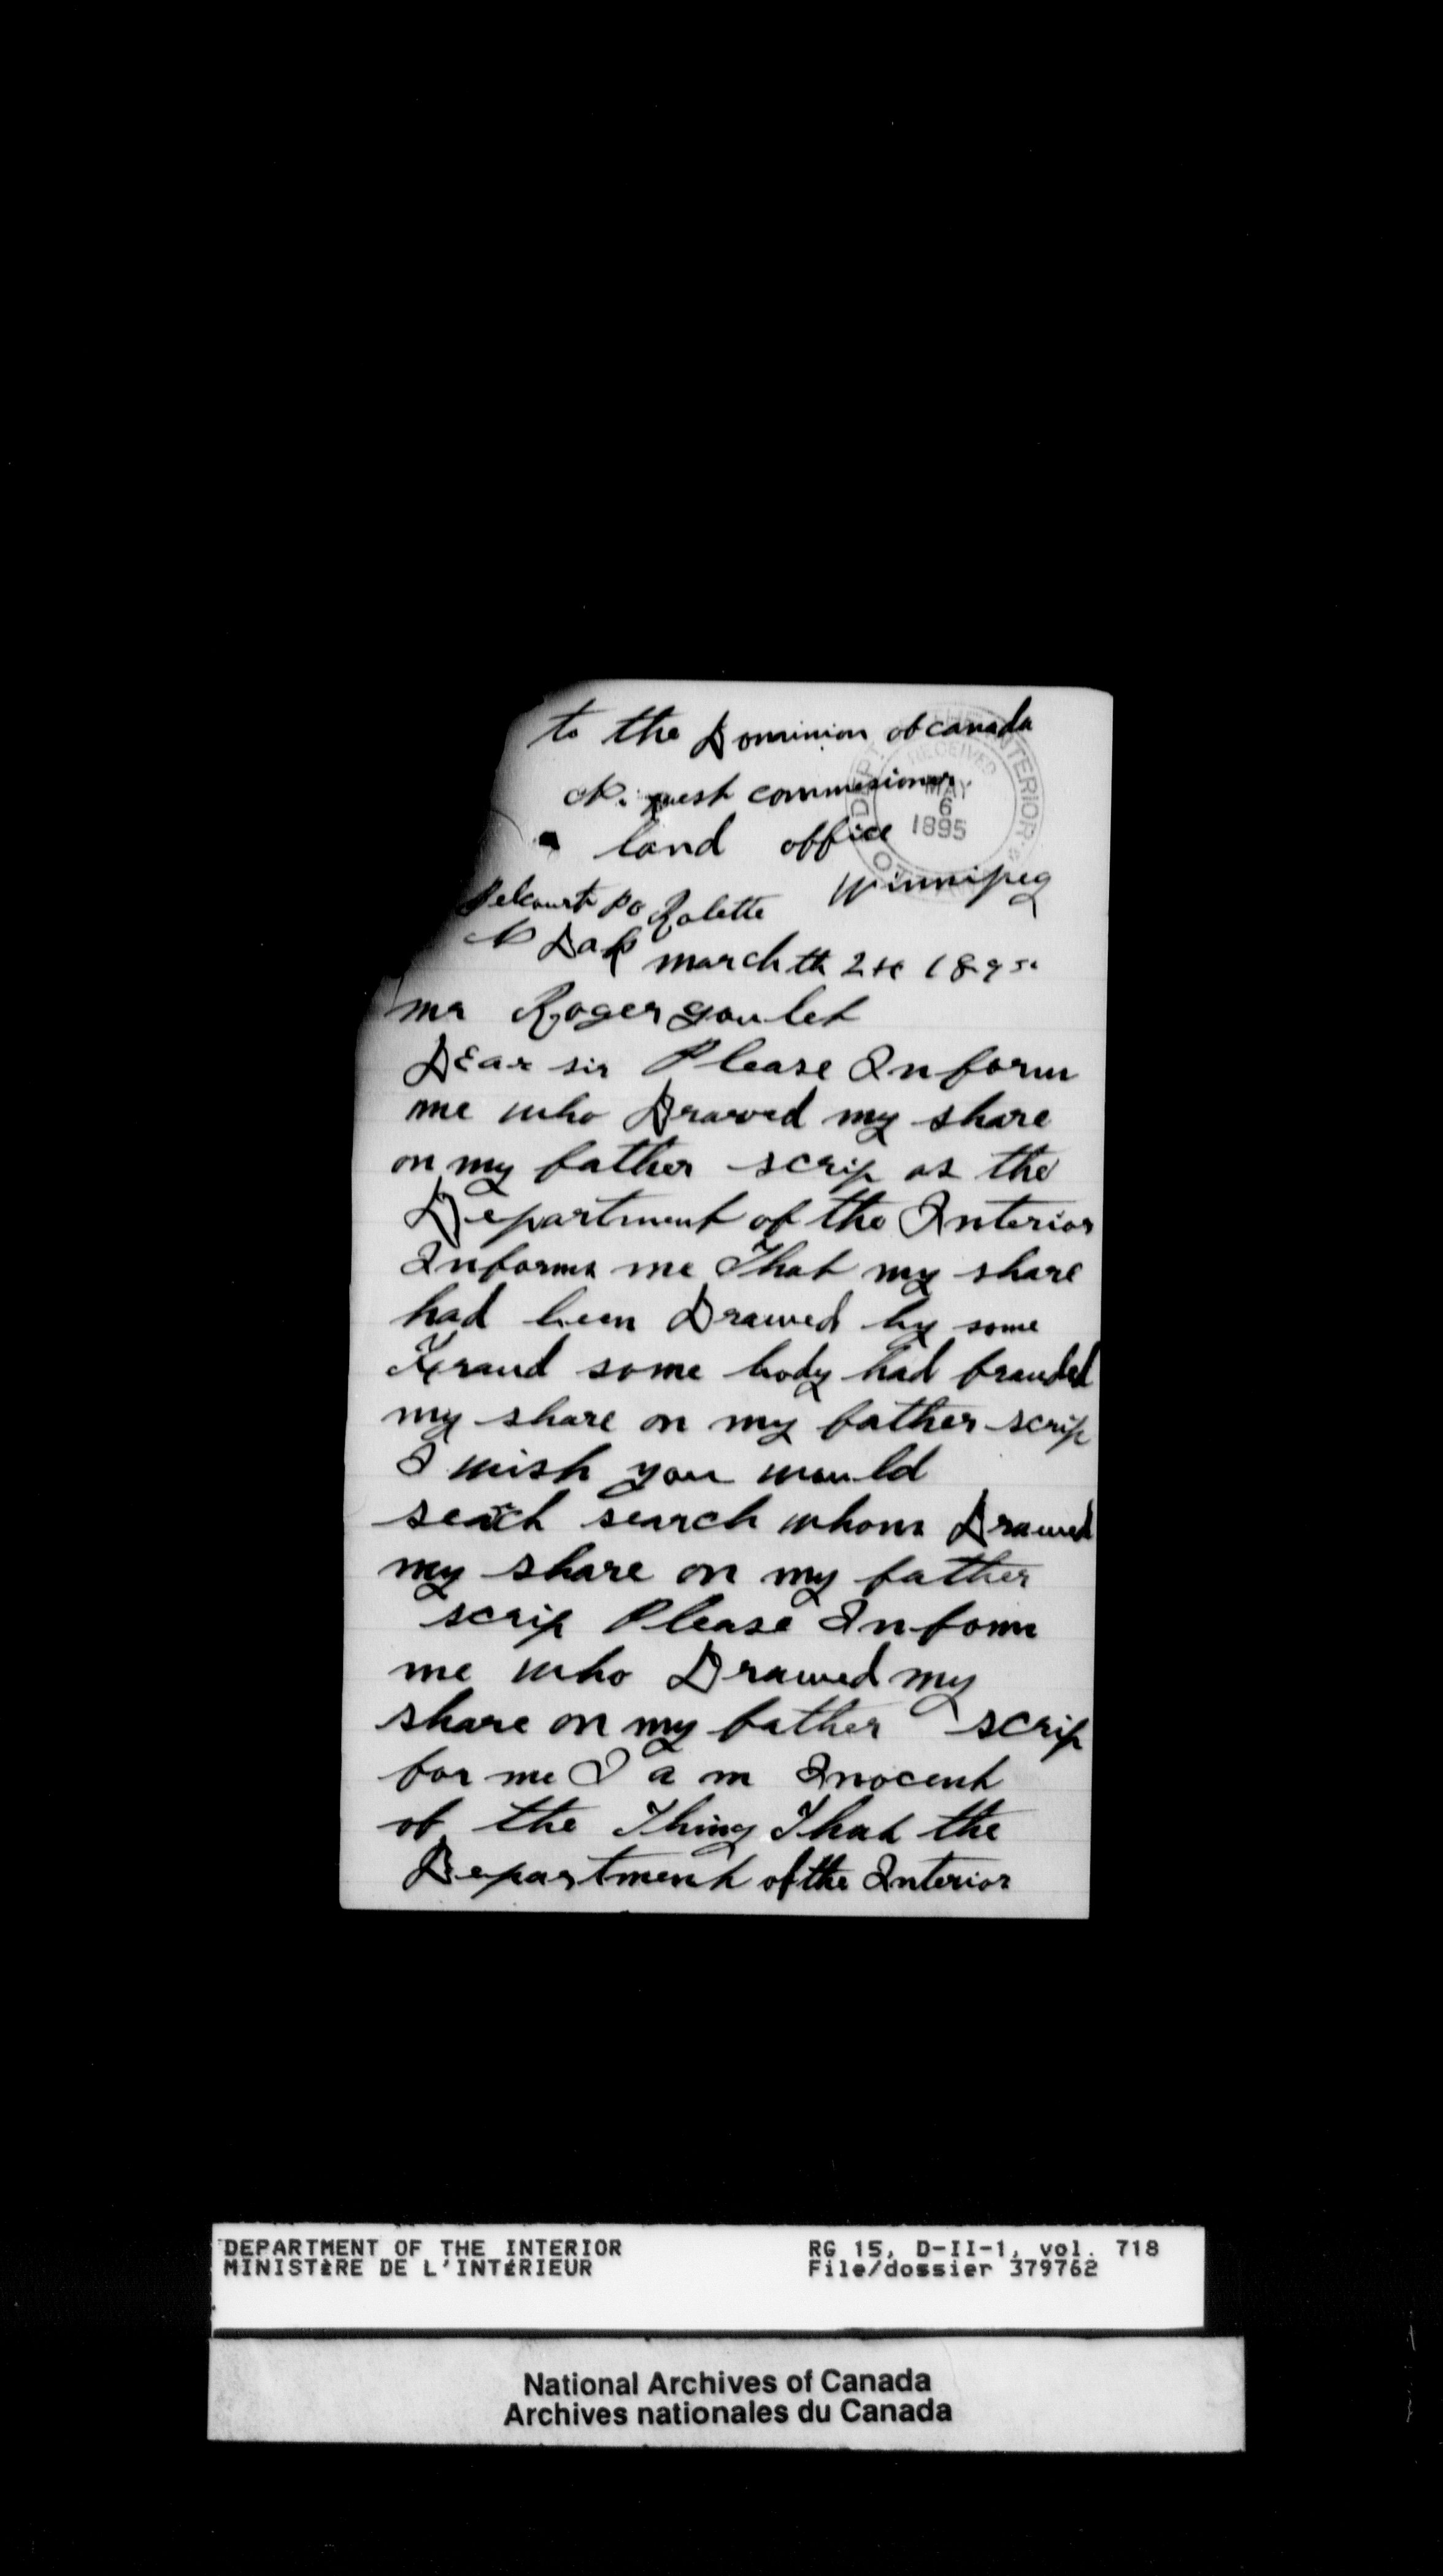 to the Dominion of canada
N. west commesioner
land office
Winnipeg
Belcourt Po Rolette
N Dak march th 24 1895.
mr Roger goulet
DEar sir Please Inform
me who Drawed my share
on my father scrip as the
Department of the Interior
Informs me That my share
had been Drawed by some
Fraud some body had frauded
my share on my father scrip
I wish you would
seach search whom Drawed
my share on my father
scrip Please Infom
me who Drawed my
share on my father scrip
for me I a m Inocent
of the Thing That the
Department of the Interior
DEPT. INTERIOR
RECEIVED
MAY
6
1895
DEPARTMENT OF THE INTERIOR
MINISTÈRE DE L'INTÉRIEUR
RG 15, D-II-1, vol. 718
File/dossier 379762
National Archives of Canada
Archives nationales du Canada